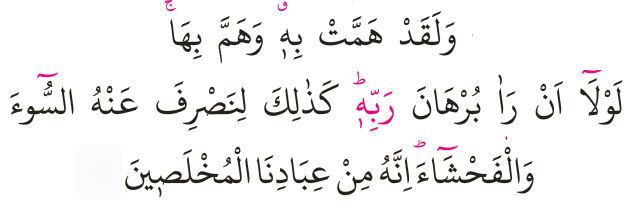 وَلَقَدْ هَمَّتْ بِهٖۚ وَهَمَّ بِهَاۚ
لَوْلَاۤ اَنْ رَاٰ بُرْهَانَ رَبِّهٖؕ كَذٰلِكَ لِنَصْرِفَ عَنْهُ السُّوۤءَ
وَالْفَحْشَاۤءَؕ اِنَّهُ مِنْ عِبَادِنَا الْمُخْلَصٖينَ